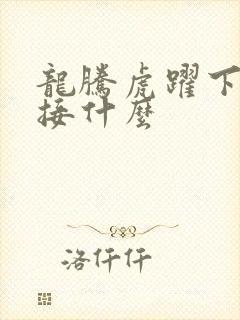 龍騰虎躍下
接什麼
洛仟仟